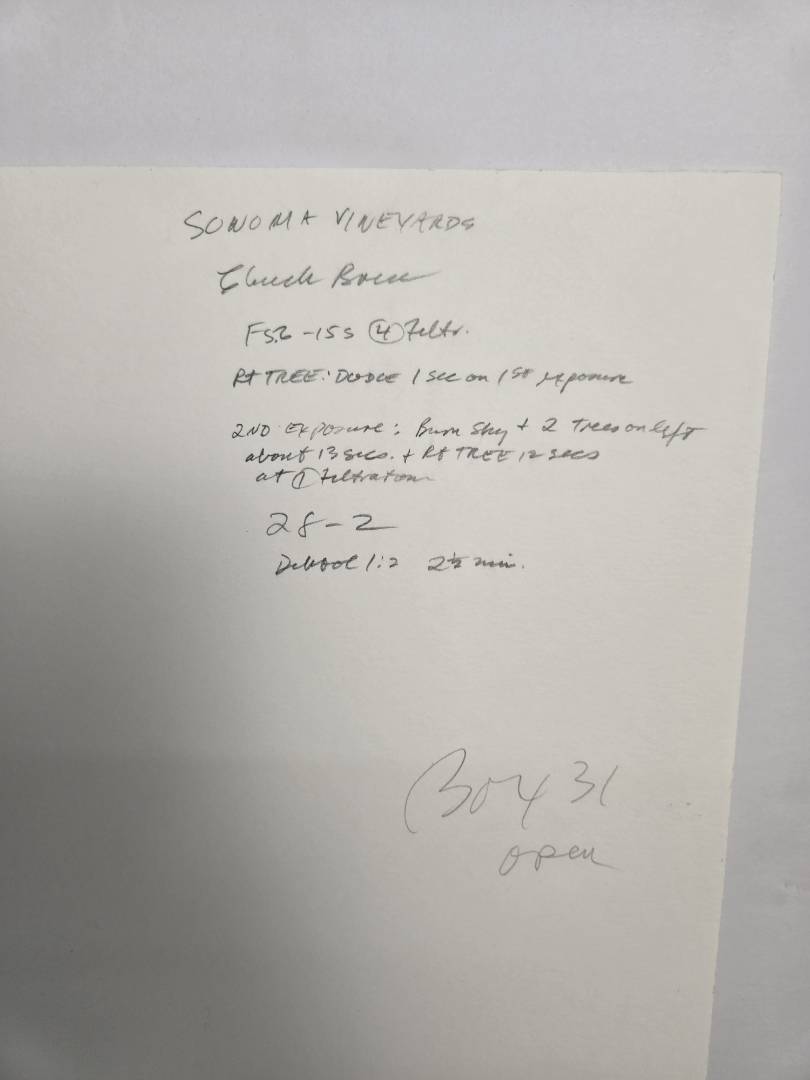 SONOMA VINEYARDS
Chuck
F5.6 - 15 s 4 Filtr.
Rt TREE: DODGE 1 sec on 1st exposure
2ND EXPOSURE: Burn Sky + 2 Trees on left
about 13 secs. + Rt TREE 12 secs
at 1 Filtration
28-2
Dektol 1:2 2½ min.
Box 31
open